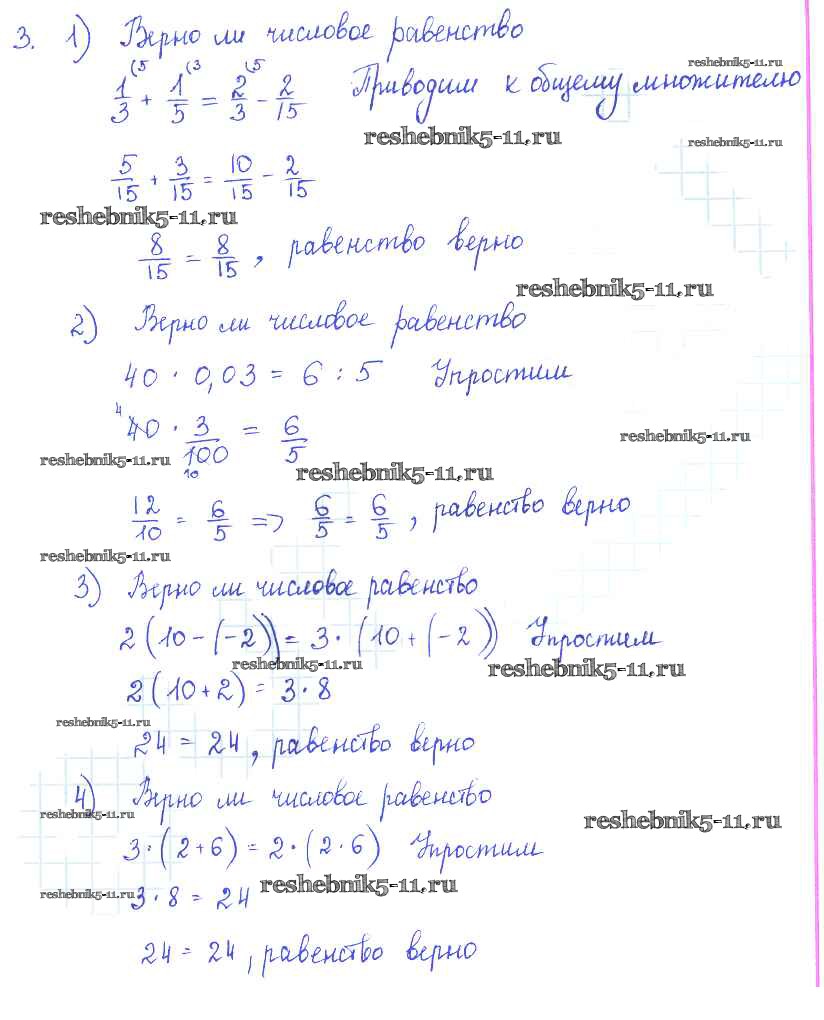 3. 1) Верно ли числовое равенство
reshebnik5-11.ru
1/3 (5 + 1/5 (3 = 2/3 (5 - 2/15 Приводим к общему множителю
reshebnik5-11.ru
reshebnik5-11.ru
5/15 + 3/15 = 10/15 - 2/15
reshebnik5-11.ru
8/15 = 8/15, равенство верно
reshebnik5-11.ru
2) Верно ли числовое равенство
40 · 0,03 = 6 : 5 Упростим
4 40 · 3/100 10 = 6/5
reshebnik5-11.ru
reshebnik5-11.ru
reshebnik5-11.ru
12/10 = 6/5 => 6/5 = 6/5, равенство верно
reshebnik5-11.ru
3) Верно ли числовое равенство
2(10-(-2)) = 3·(10+(-2)) Упростим
reshebnik5-11.ru
reshebnik5-11.ru
2(10+2) = 3·8
reshebnik5-11.ru
24 = 24, равенство верно
4) Верно ли числовое равенство
reshebnik5-11.ru
reshebnik5-11.ru
3·(2+6) = 2·(2·6) Упростим
reshebnik5-11.ru
reshebnik5-11.ru
3·8 = 24
24 = 24, равенство верно